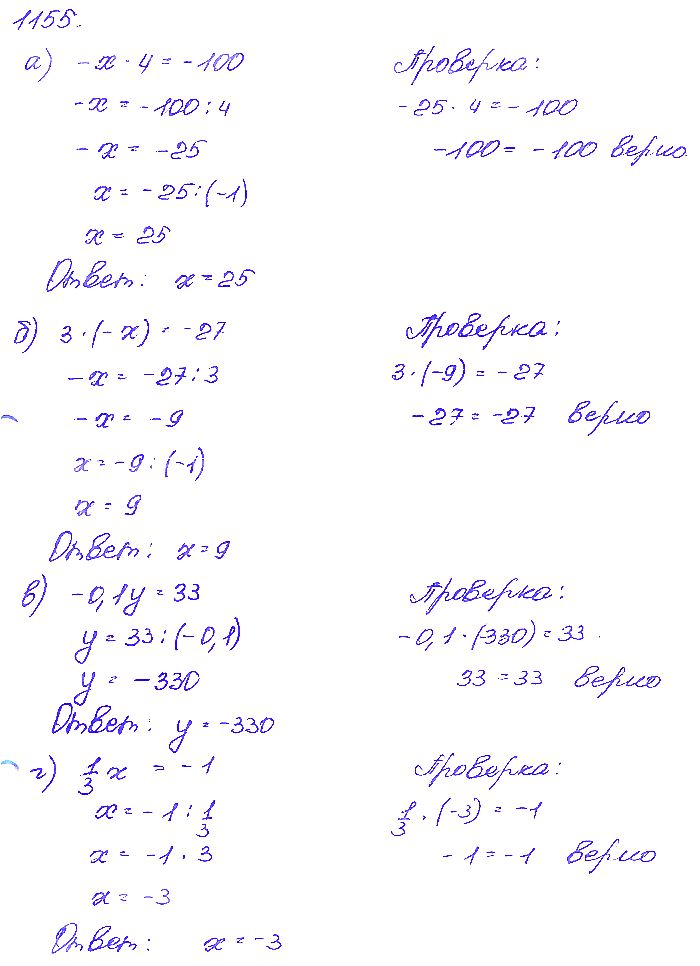 1155.
а) -x · 4 = -100 Проверка:
-x = -100 : 4 -25 · 4 = -100
-x = -25 -100 = -100 верно
x = -25 : (-1)
x = 25
Ответ: x = 25
б) 3 · (-x) = -27 Проверка:
-x = -27 : 3 3 · (-9) = -27
-x = -9 -27 = -27 верно
x = -9 : (-1)
x = 9
Ответ: x = 9
в) -0,1y = 33 Проверка:
y = 33 : (-0,1) -0,1 · (-330) = 33
y = -330 33 = 33 верно
Ответ: y = -330
г) 1/3 x = -1 Проверка:
x = -1 : 1/3 1/3 · (-3) = -1
x = -1 · 3 -1 = -1 верно
x = -3
Ответ: x = -3